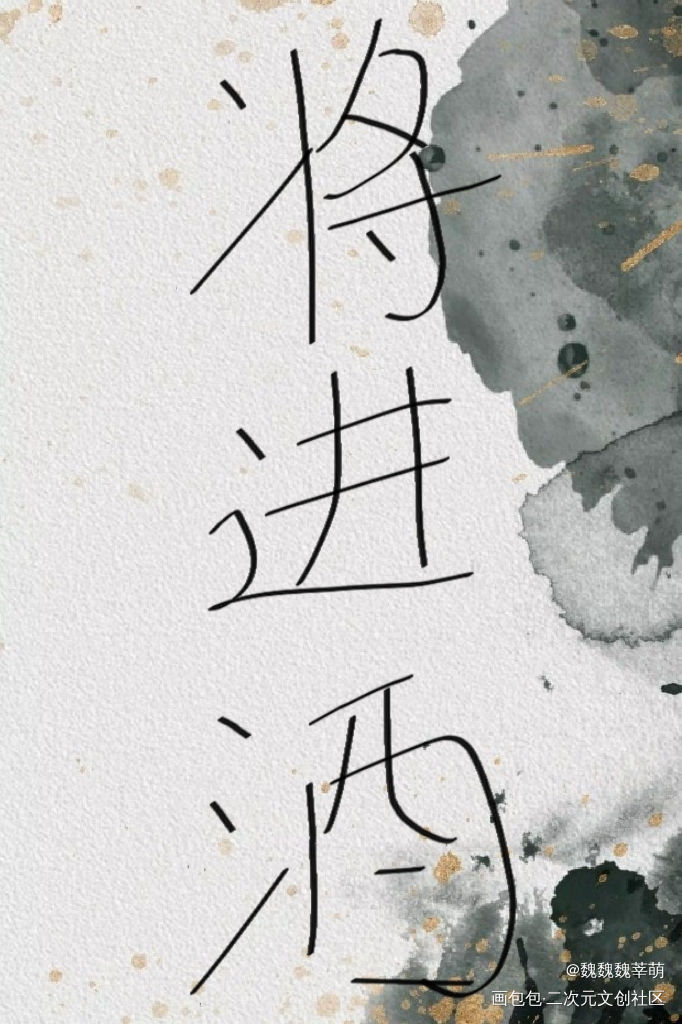 将进酒
@魏魏魏莘萌
画包包·二次元文创社区